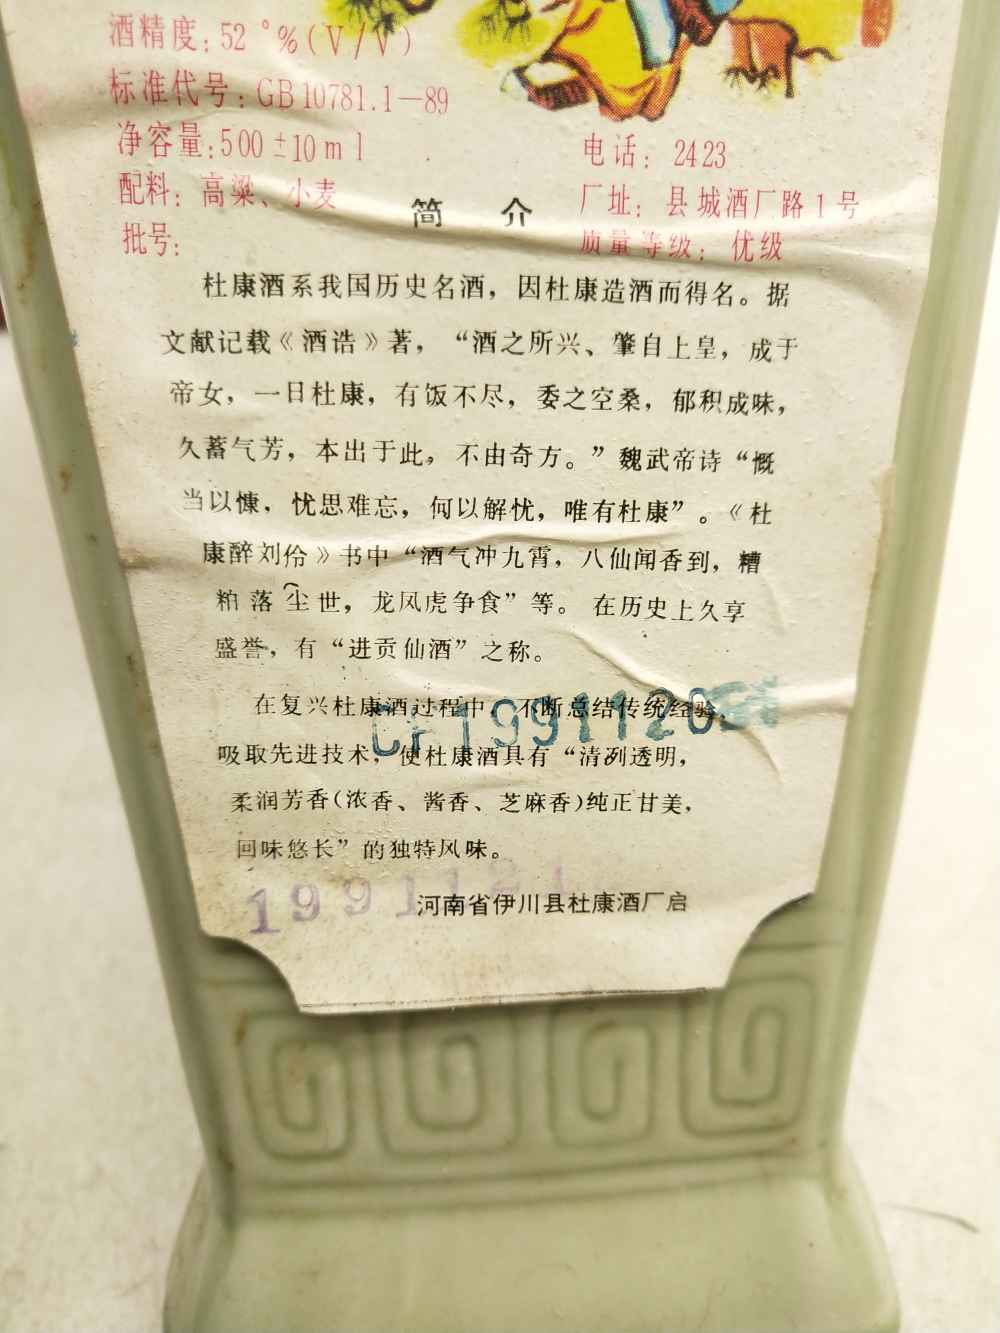 酒精度: 52°%(V/V)
标准代号: GB 10781.1—89
净容量: 500±10ml
配料: 高粱、小麦
批号:
电话: 2423
厂址: 县城酒厂路1号
质量等级: 优级
简 介
杜康酒系我国历史名酒，因杜康造酒而得名。据
文献记载《酒诰》著，“酒之所兴、肇自上皇，成于
帝女，一日杜康，有饭不尽，委之空桑，郁积成味，
久蓄气芳，本出于此，不由奇方。”魏武帝诗“慨
当以慷，忧思难忘，何以解忧，唯有杜康”。《杜
康醉刘伶》书中“酒气冲九霄，八仙闻香到，糟
粕落尘世，龙凤虎争食”等。在历史上久享
盛誉，有“进贡仙酒”之称。
在复兴杜康酒过程中，不断总结传统经验，
吸取先进技术，使杜康酒具有“清冽透明，
柔润芳香(浓香、酱香、芝麻香)纯正甘美，
回味悠长”的独特风味。
19911120
1991121
河南省伊川县杜康酒厂启